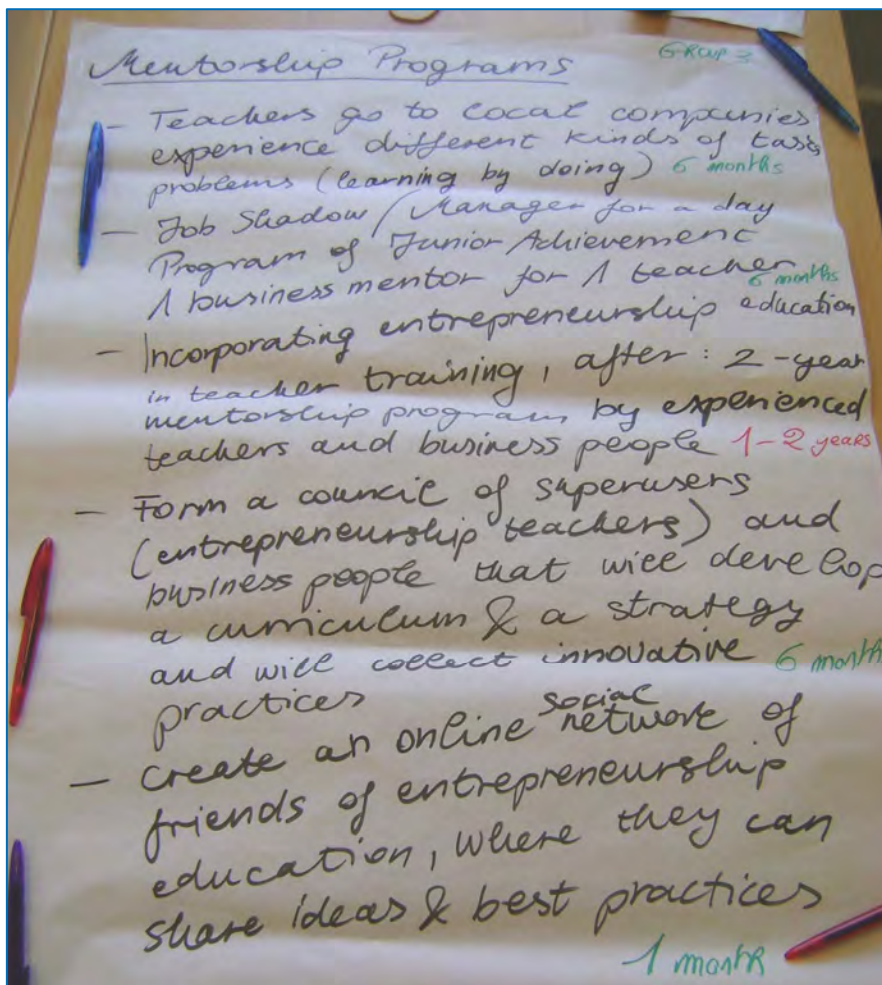 Mentorship Programs GROUP 3
- Teachers go to local companies
experience different kinds of tasks
problems (learning by doing) 6 months
- Job Shadow / Manager for a day
Program of Junior Achievement
1 business mentor for 1 teacher 6 months
- Incorporating entrepreneurship education
in teacher training, after: 2-year
mentorship program by experienced
teachers and business people 1-2 years
- Form a council of superusers
(entrepreneurship teachers) and
business people that will develop
a curriculum & a strategy
and will collect innovative 6 month
practices
- Create an online social network of
friends of entrepreneurship
education, where they can
share ideas & best practices
1 month